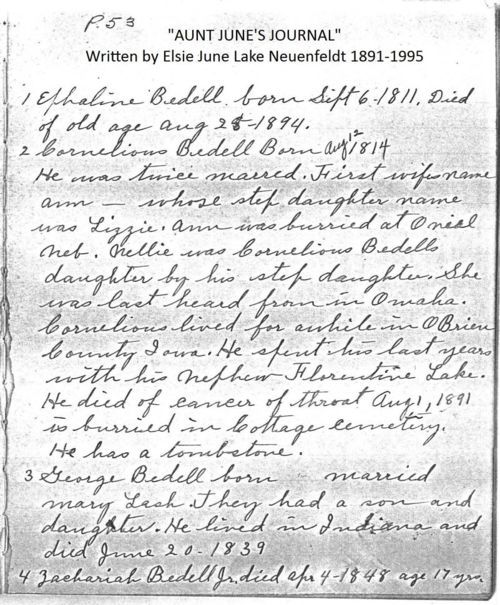 P. 53
"AUNT JUNE'S JOURNAL"
Written by Elsie June Lake Neuenfeldt 1891-1995
1 Ephaline Bedell. born Sept 6-1811. Died
of old age aug 28-1894.
2 Cornelious Bedell Born Aug 12 1814
He was twice marred. First wifes name
ann — whose step daughter name
was Lizzie. ann was burried at Oneal
Neb. Nellie was Cornelious Bedells
daughter by his step daughter. She
was last heard from in Omaha.
Cornelious lived for awhile in O Brien
County Iowa. He spent his last years
with his nephew Florentine Lake.
He died of cancer of throat Aug 1, 1891
is burried in Cottage cemetery.
He has a tombstone.
3 George Bedell born - married
mary Lash. They had a son and
daughter. He lived in Indiana and
died June 20-1839
4 Zachariah Bedell Jr. died apr 4-1848 age 17 yrs.